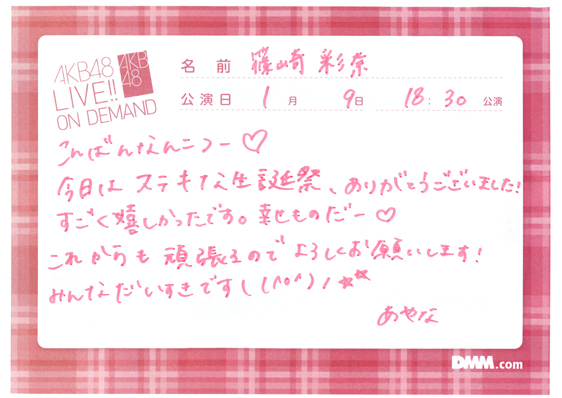 AKB48
LIVE!!
ON DEMAND
AKB
48
名前 篠崎 彩奈
公演日 1月 9日 18:30 公演
こんばんなんこつー♡
今日は ステキな生誕祭、ありがとうございました!
すごく嬉しかったです。幸せものだー♡
これからも 頑張るので よろしくお願いします!
みんなだいすきですし(^o^)ノ☆☆
あやな
DMM.com